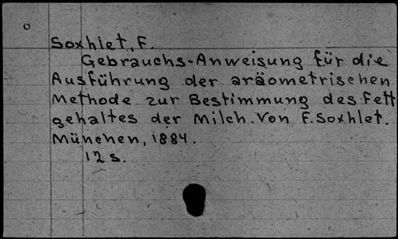 Soxhlet, F.
Gebrauchs-Anweisung für die
Ausführung der aräometrischen
Methode zur Bestimmung des Fett
gehaltes der Milch. Von F. Soxhlet.
München, 1884.
12 s.